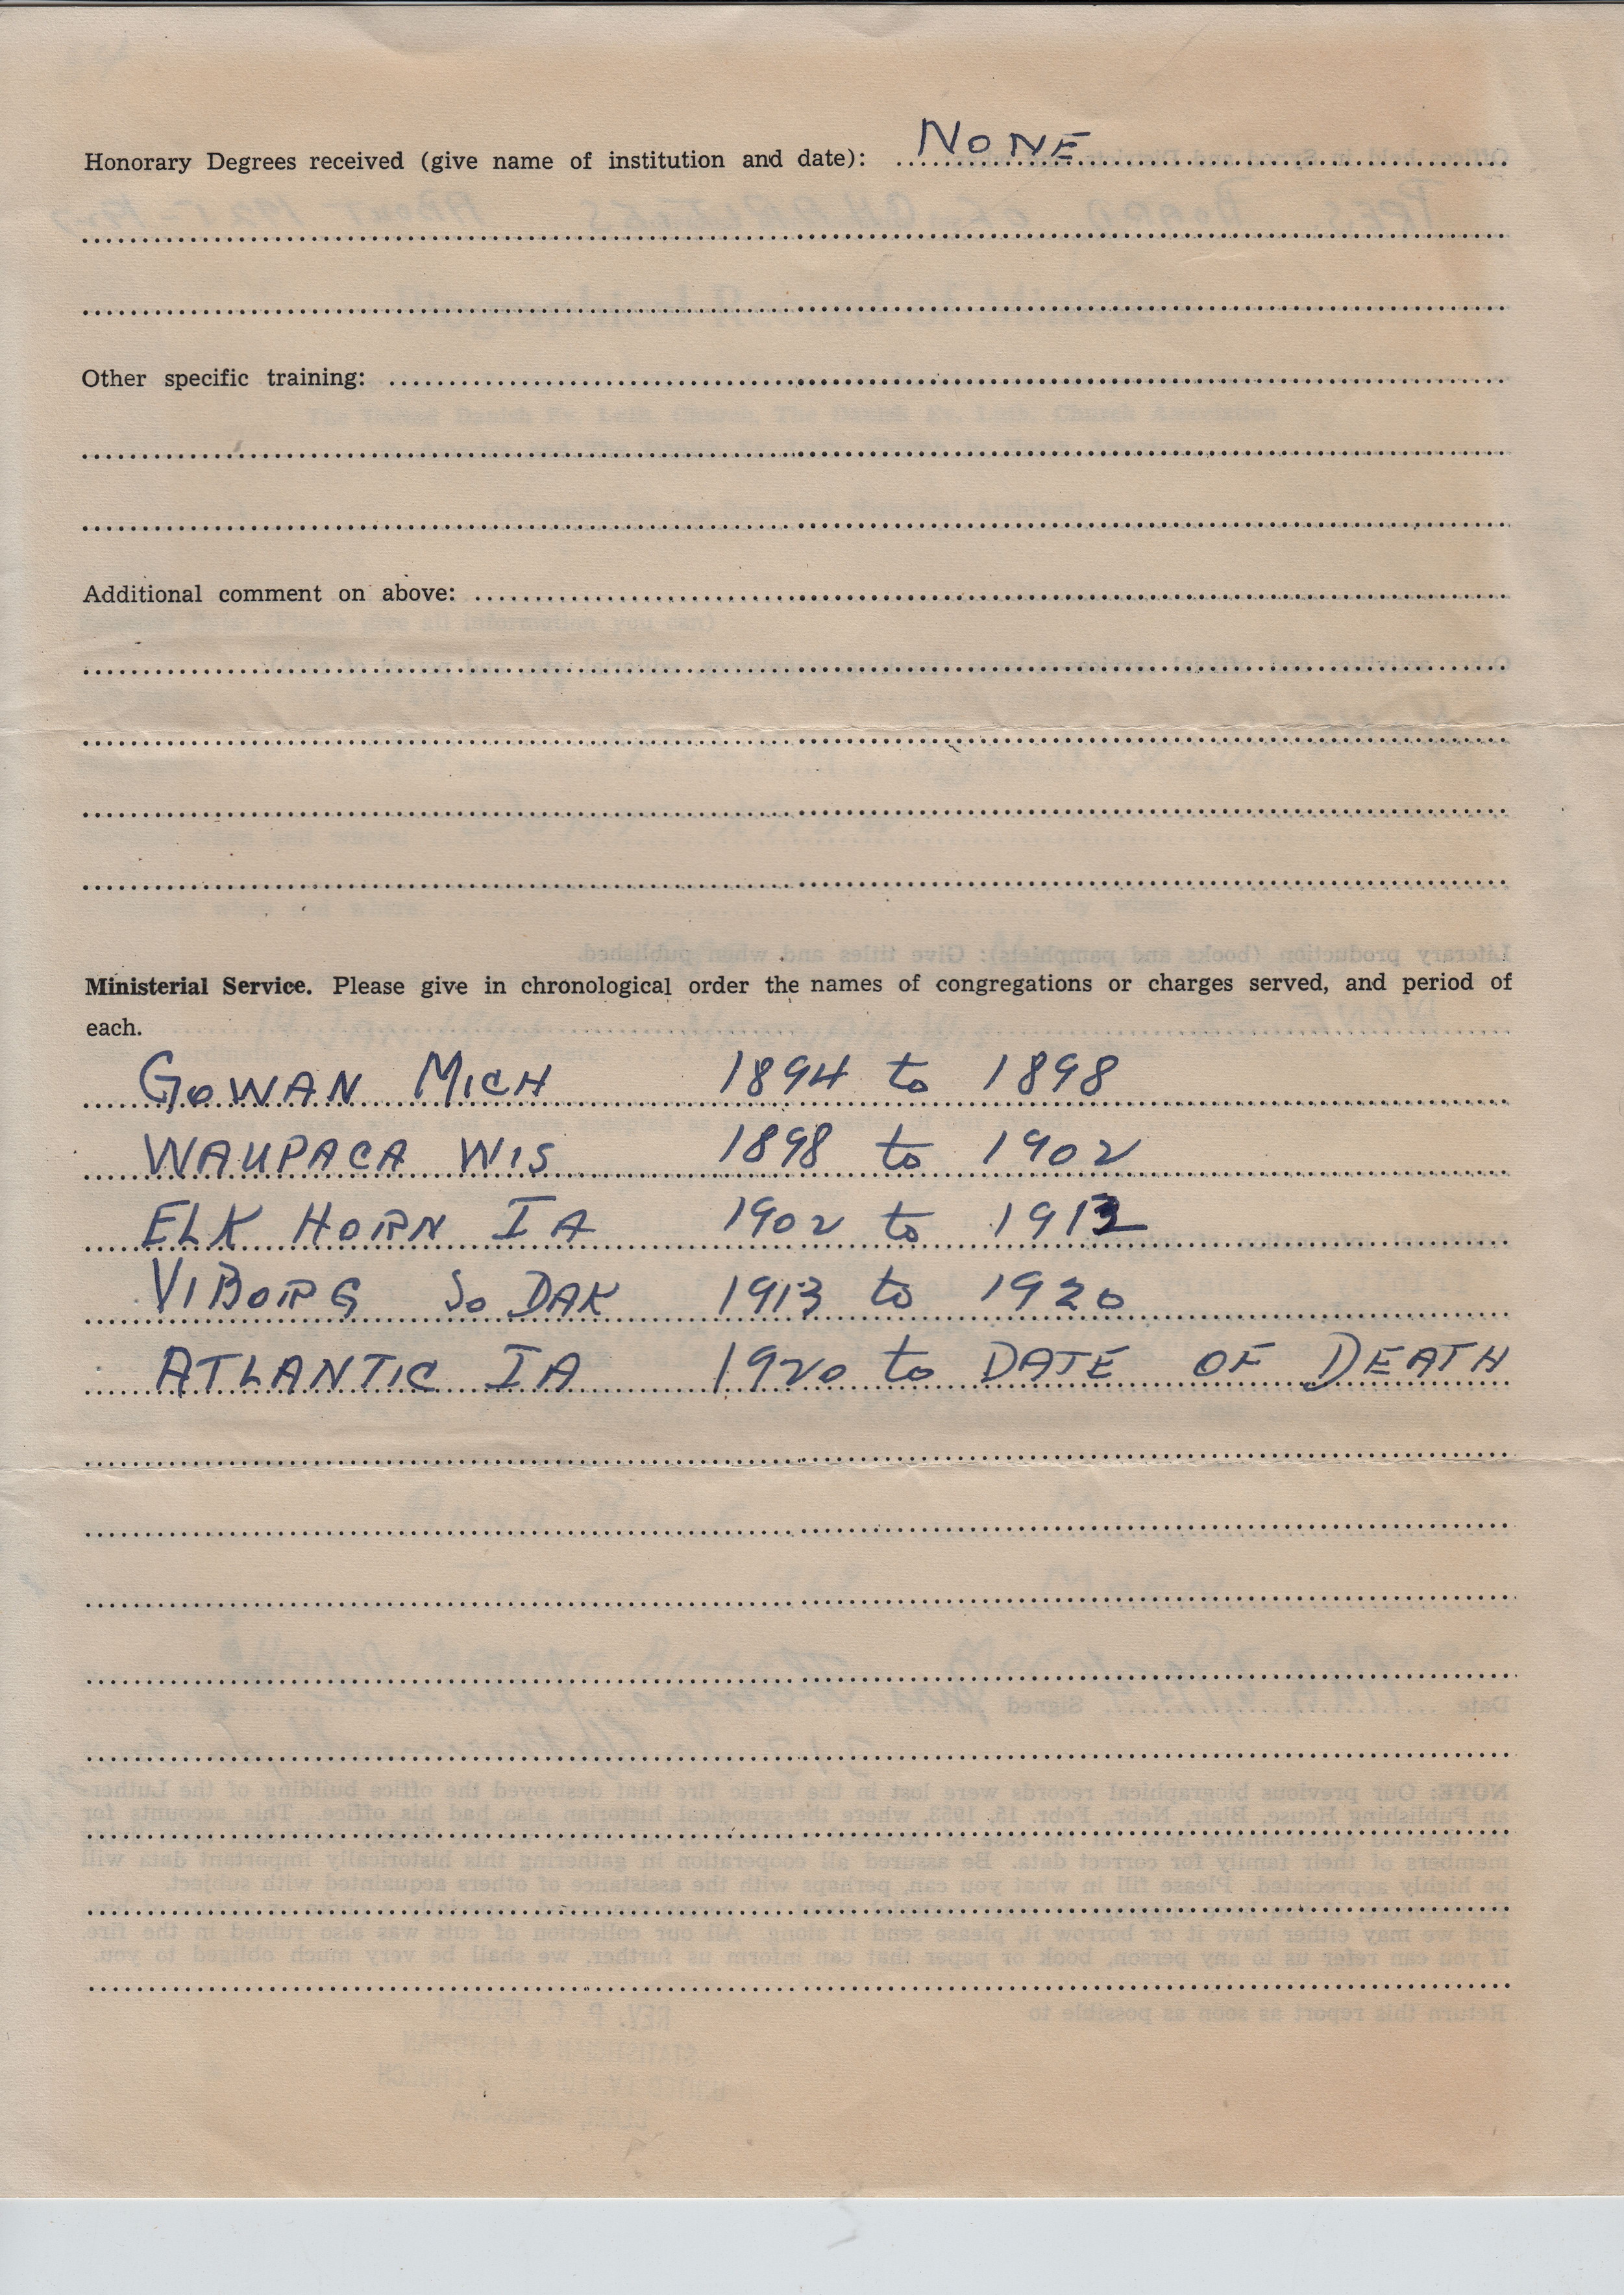 Honorary Degrees received (give name of institution and date): NONE
Other specific training:
Additional comment on above:
Ministerial Service. Please give in chronological order the names of congregations or charges served, and period of
each.
GOWAN MICH 1894 to 1898
WAUPACA WIS 1898 to 1902
ELK HORN IA 1902 to 1913
VIBORG SO DAK 1913 to 1920
ATLANTIC IA 1920 to DATE OF DEATH